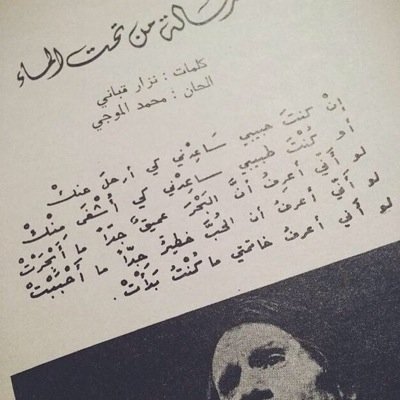 رسالة من تحت الماء
كلمات : نزار قباني
الحان : محمد الموجي
إنْ كنتَ حبيبي سَاعِدْني كي أرحلَ عنكْ
أو كُنْتَ طبيبي ساعدْني كي أُشْفَى مِنْكْ
لو أنّي أعرِفُ أنَّ البَحْرَ عميقٌ جدّاً ما أَبْحَرْتْ
لو أنّي أعرفُ أن الحُبَّ خطيرٌ جدّاً ما أَحْبَبْتْ
لو أني أعرفُ خاتمتي ما كُنْتُ بَدَأْتْ.